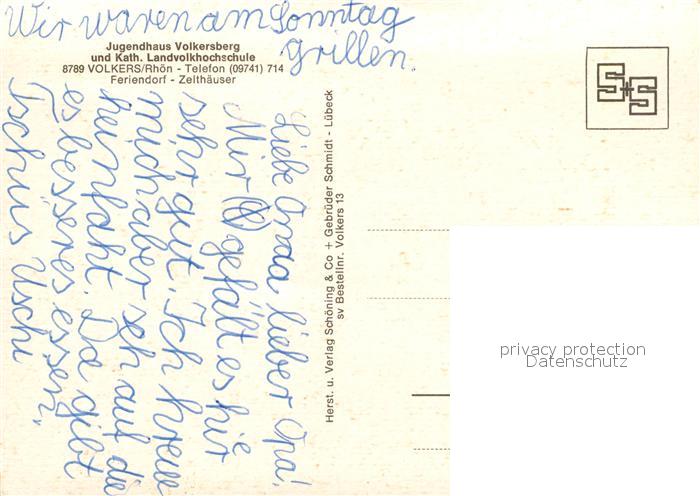 Wir waren am Sonntag
grillen.
Jugendhaus Volkersberg
und Kath. Landvolkhochschule
8789 VOLKERS/Rhön - Telefon (09741) 714
Feriendorf - Zelthäuser
Liebe Oma, lieber Opa!
Mir gefällt es hier
sehr gut. Ich freue
mich aber seh auf die
heinfaht. Da gibt
es besseres essen.
Tschüs Uschi
Herst. u. Verlag Schöning & Co + Gebrüder Schmidt - Lübeck
sv Bestellnr. Volkers 13
S+S
privacy protection
Datenschutz